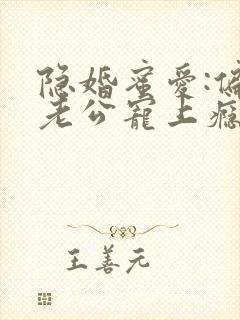 隐婚蜜爱:偏
老公寵上瘾
王善元